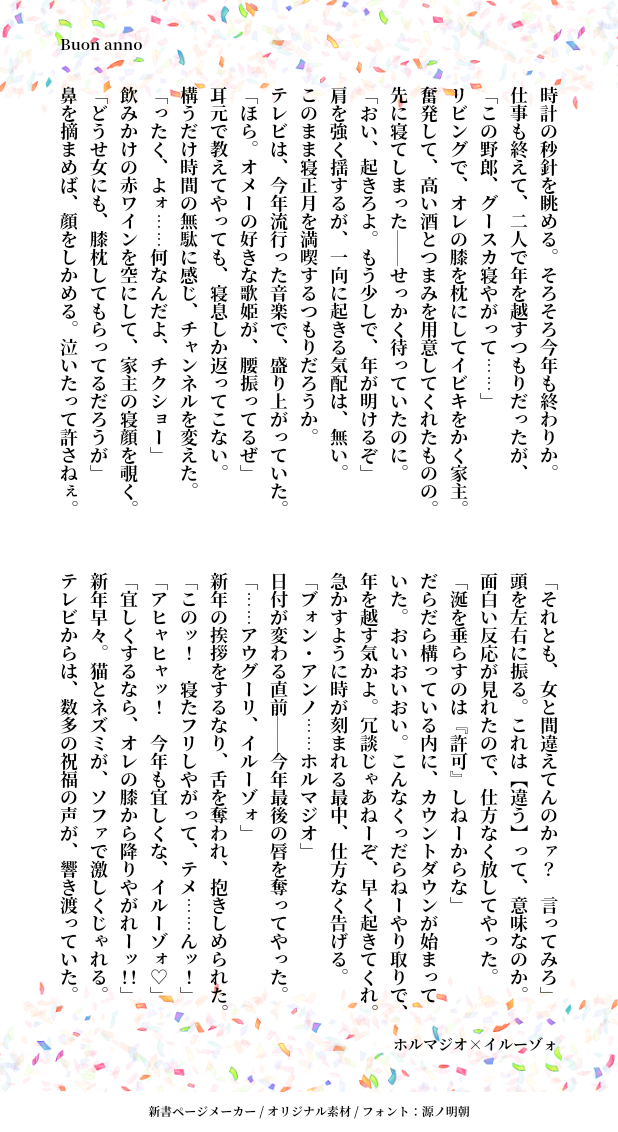 Buon anno
時計の秒針を眺める。そろそろ今年も終わりか。
仕事も終えて、二人で年を越すつもりだったが、
「この野郎、グースカ寝やがって……」
リビングで、オレの膝を枕にしてイビキをかく家主。
奮発して、高い酒とつまみを用意してくれたものの。
先に寝てしまった――せっかく待っていたのに。
「おい、起きろよ。もう少しで、年が明けるぞ」
肩を強く揺するが、一向に起きる気配は、無い。
このまま寝正月を満喫するつもりだろうか。
テレビは、今年流行った音楽で、盛り上がっていた。
「ほら。オメーの好きな歌姫が、腰振ってるぜ」
耳元で教えてやっても、寝息しか返ってこない。
構うだけ時間の無駄に感じ、チャンネルを変えた。
「ったく、よォ……何なんだよ、チクショー」
飲みかけの赤ワインを空にして、家主の寝顔を覗く。
「どうせ女にも、膝枕してもらってるだろうが」
鼻を摘まめば、顔をしかめる。泣いたって許さねぇ。
「それとも、女と間違えてんのかァ?　言ってみろ」
頭を左右に振る。これは【違う】って、意味なのか。
面白い反応が見れたので、仕方なく放してやった。
「涎を垂らすのは『許可』しねーからな」
だらだら構っている内に、カウントダウンが始まって
いた。おいおいおい。こんなくっだらねーやり取りで、
年を越す気かよ。冗談じゃあねーぞ、早く起きてくれ。
急かすように時が刻まれる最中、仕方なく告げる。
「ブォン・アンノ……ホルマジオ」
日付が変わる直前――今年最後の唇を奪ってやった。
「……アウグーリ、イルーゾォ」
新年の挨拶をするなり、舌を奪われ、抱きしめられた。
「このッ!　寝たフリしやがって、テメ……んッ!」
「アヒャヒャッ!　今年も宜しくな、イルーゾォ♡」
「宜しくするなら、オレの膝から降りやがれーッ!!」
新年早々。猫とネズミが、ソファで激しくじゃれる。
テレビからは、数多の祝福の声が、響き渡っていた。
ホルマジオ×イルーゾォ
新書ページメーカー / オリジナル素材 / フォント：源ノ明朝